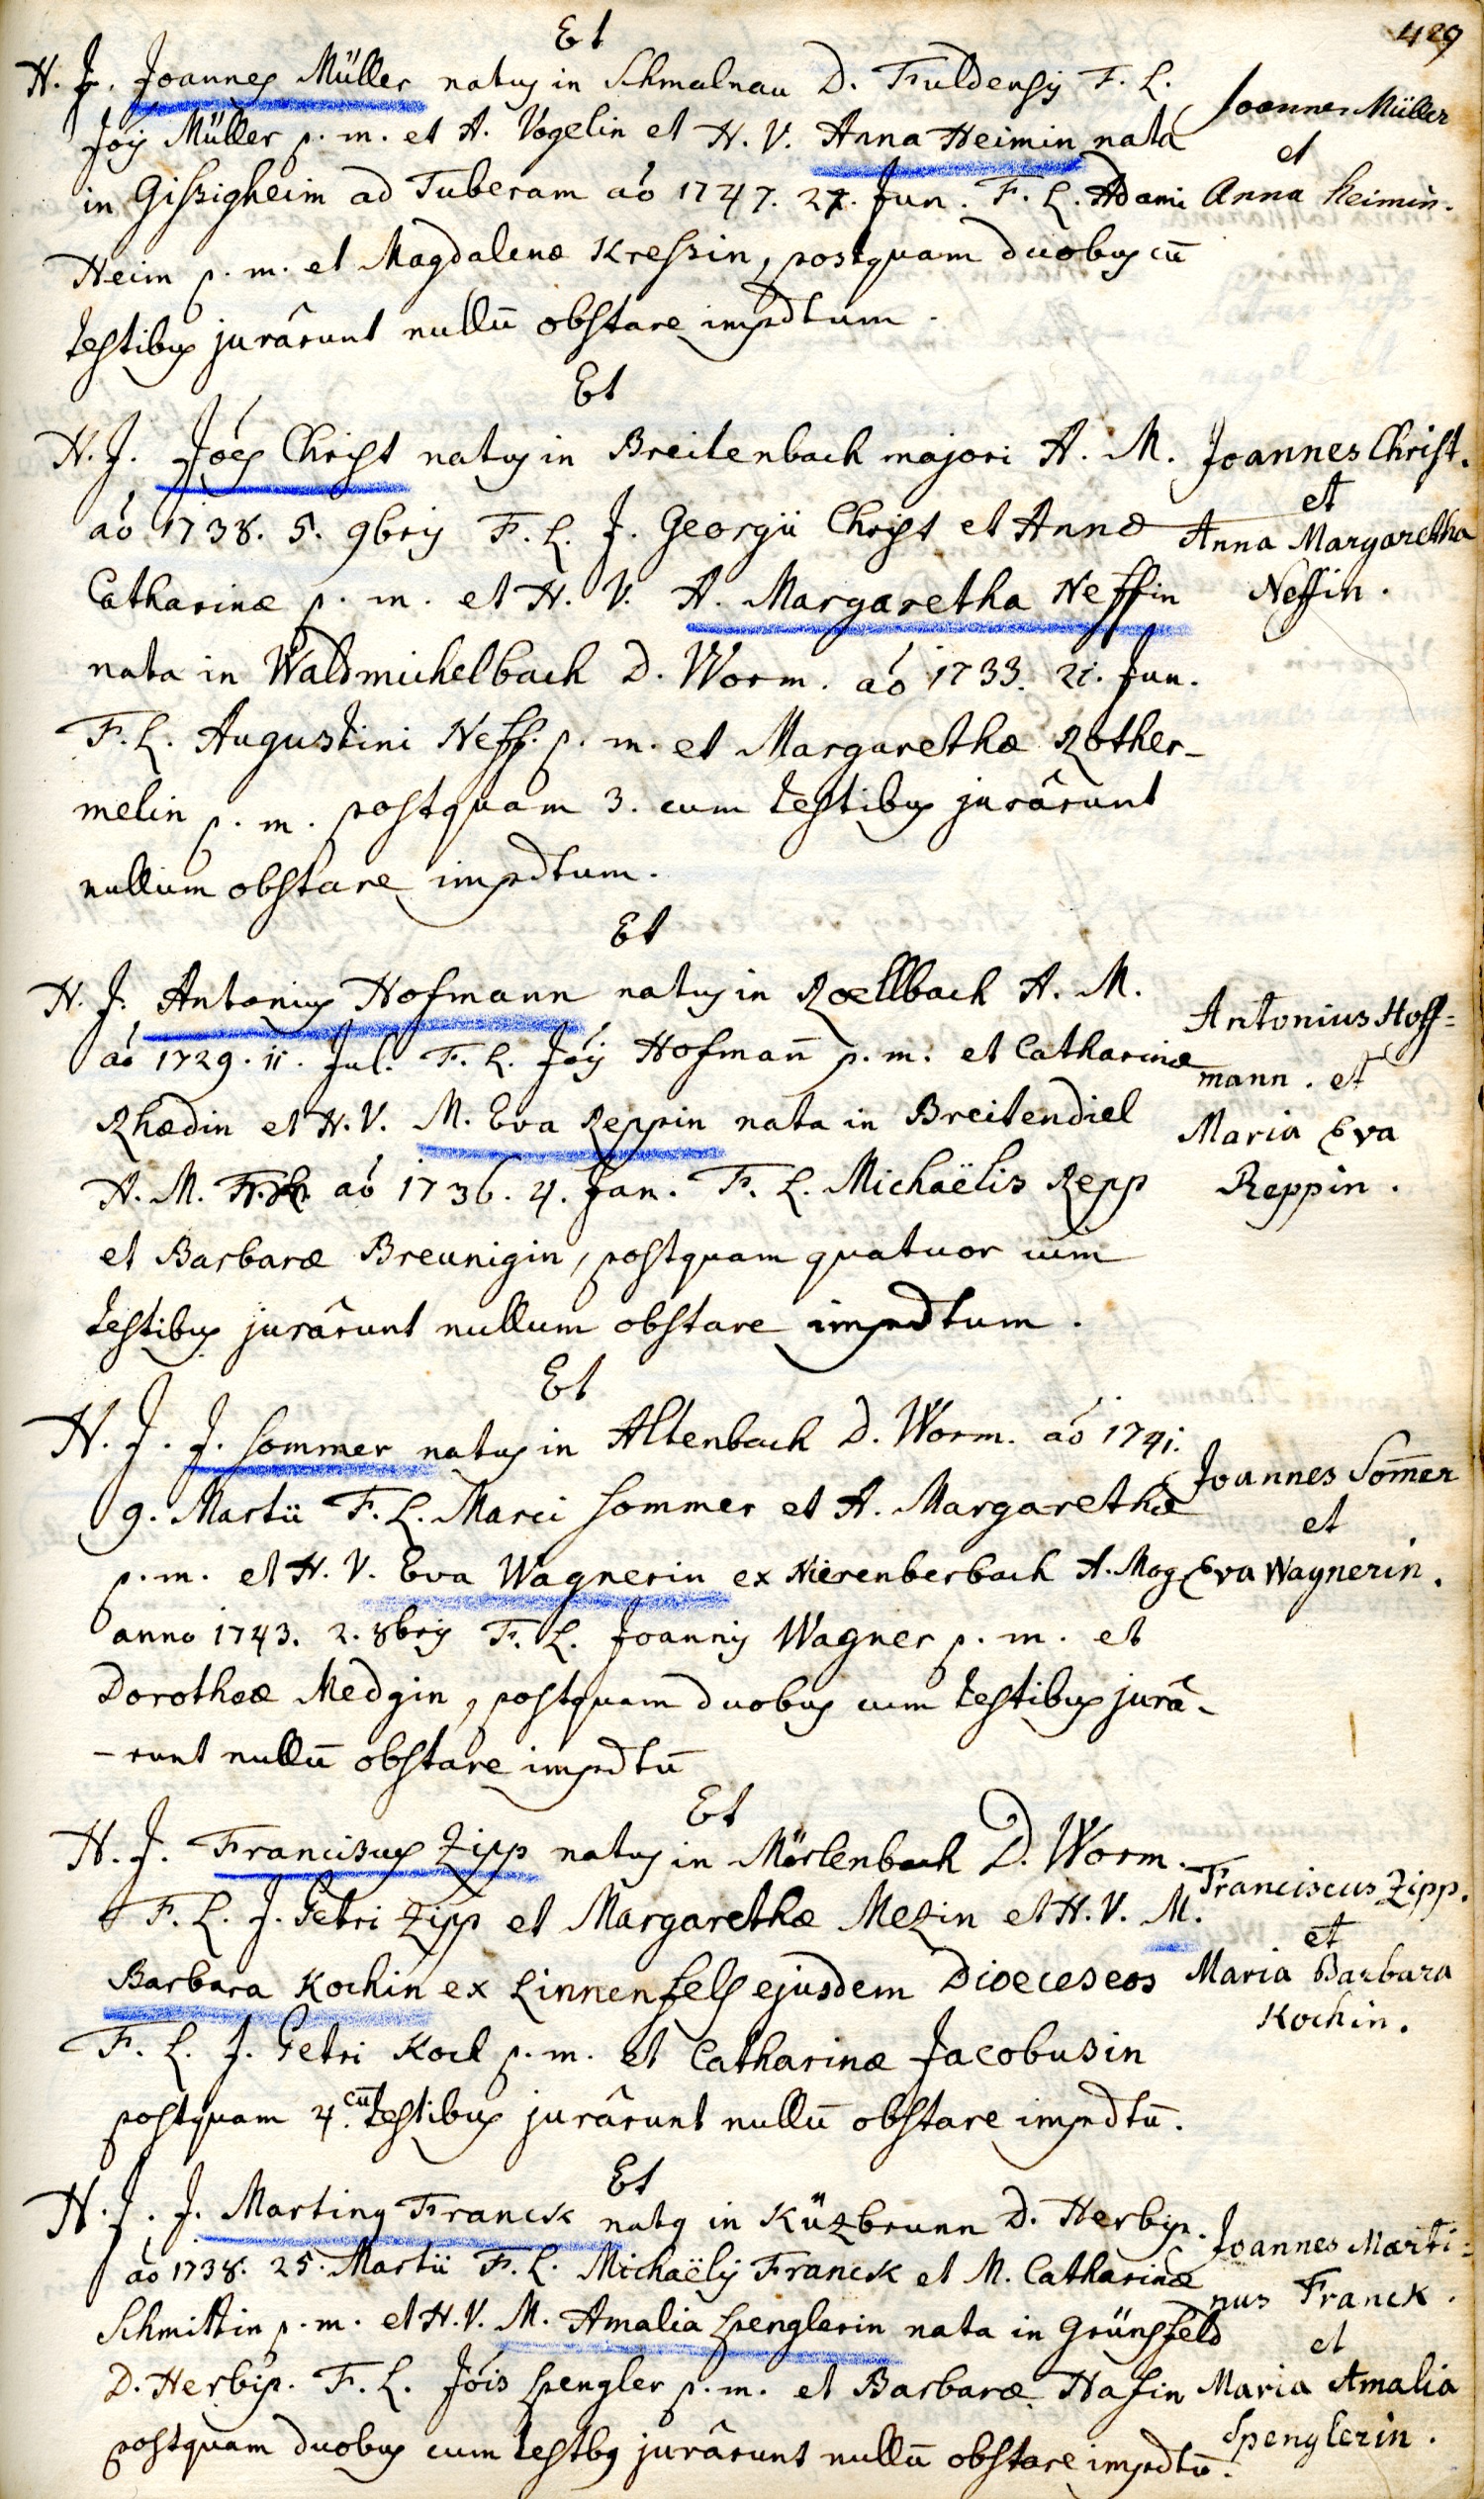 429
Et
H. J. Joannes Müller natus in Schmalnau D. Fuldensis F. L.
Jois Müller p. m. et A. Vogelin et H. V. Anna Heimin nata
in Gissigheim ad Tuberam aó 1747. 27. Jun. F. L. Adami
Heim p. m. et Magdalenæ Kressin, postquam duobus cū
testibus jurârunt nullū obstare impdtum.
Joannes Müller
et
Anna Heimin.
Et
H. J. Jóes Christ natus in Breitenbach majori A. M.
aó 1738. 5. 9bris F. L. J. Georgii Christ et Annæ
Catharinæ p. m. et H. V. A. Margaretha Neffin
nata in Waldmichelbach D. Worm. aó 1733. 21. Jun.
F. L. Augustini Neff. p. m. et Margarethæ Rother-
melin p. m. postquam 3. cum testibus jurârunt
nullum obstare impdtum.
Joannes Christ.
et
Anna Margaretha
Neffin.
Et
H. J. Antonius Hofmann natus in Roellbach A. M.
aó 1729. 11. Jul. F. L. Jóis Hofmañ p. m. et Catharinæ
Rhædin et H. V. M. Eva Reppin nata in Breitendiel
A. M. aó 1736. 4. Jan. F. L. Michaëlis Repp
et Barbaræ Breunigin, postquam quatuor cum
testibus jurârunt nullum obstare impdtum.
Antonius Hoff=
mann. et
Maria Eva
Reppin.
Et
H. J. J. Sommer natus in Altenbach D. Worm. aó 1741.
9. Martii F. L. Marci Sommer et A. Margarethæ
p. m. et H. V. Eva Wagnerin ex Nierenberbach A. Mog.
anno 1743. 2. 8bris F. L. Joannis Wagner p. m. et
Dorotheæ Medgin, postquam duobus cum testibus jurâ-
-runt nullū obstare impdtū
Joannes Som̄er
et
Eva Wagnerin.
Et
H. J. Franciscus Zipp natus in Mörlenbach D. Worm.
F. L. J. Petri Zipp et Margarethæ Mezin et H. V. M.
Barbara Kochin ex Linnenfels ejusdem Dioeceseos
F. L. J. Petri Koch p. m. et Catharinæ Jacobusin
postquam 4. cū testibus jurârunt nullū obstare impdtū.
Franciscus Zipp.
et
Maria Barbara
Kochin.
Et
H. J. J. Martinq Franck natq in Küzbrunn D. Herbip.
aó 1738. 25. Martii F. L. Michaëlis Franck et M. Catharinæ
Schmittin p. m. et H. V. M. Amalia Spenglerin nata in Grünsfeld
D. Herbip. F. L. Jóis Spengler p. m. et Barbaræ Hasin
postquam duobus cum testbq jurârunt nullū obstare impdtū.
Joannes Marti=
nus Franck.
et
Maria Amalia
Spenglerin.